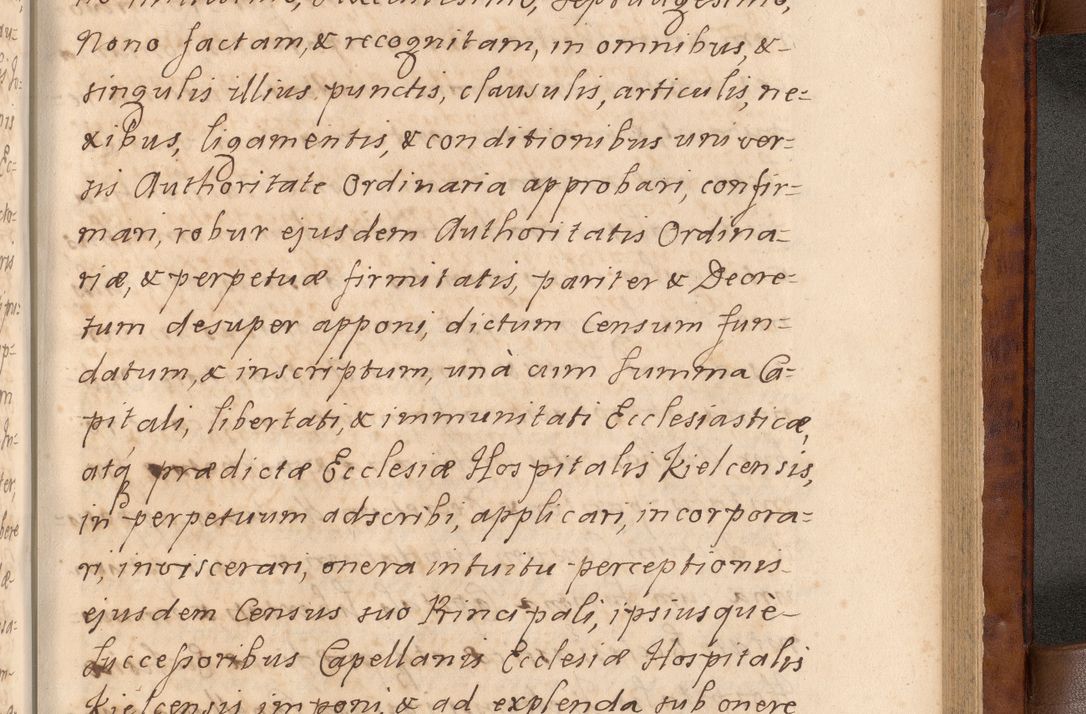 Nono factam, & recognitam, in omnibus, &
singulis illius punctis, clausulis, articulis, ne=
xibus, ligamentis, & conditionibus univer=
sis Authoritate Ordinaria approbari, confir=
mari, robur ejusdem Authoritatis Ordina=
riæ, & perpetuæ firmitatis, pariter & Decre=
tum desuper apponi, dictum Censum fun=
datum, & inscriptum, unà cum summa Ca=
pitali, libertati, & immunitati Ecclesiasticæ,
atq́ prædictæ Ecclesiæ Hospitalis Kielcensis,
in perpetuum adscribi, applicari, incorpora=
ri, inviscerari, onera intuitu perceptionis
ejusdem Census suo Principali, ipsiusquè
Successoribus Capellanis Ecclesiæ Hospitalis
Kielcensis imponi, & ad explenda sub onere